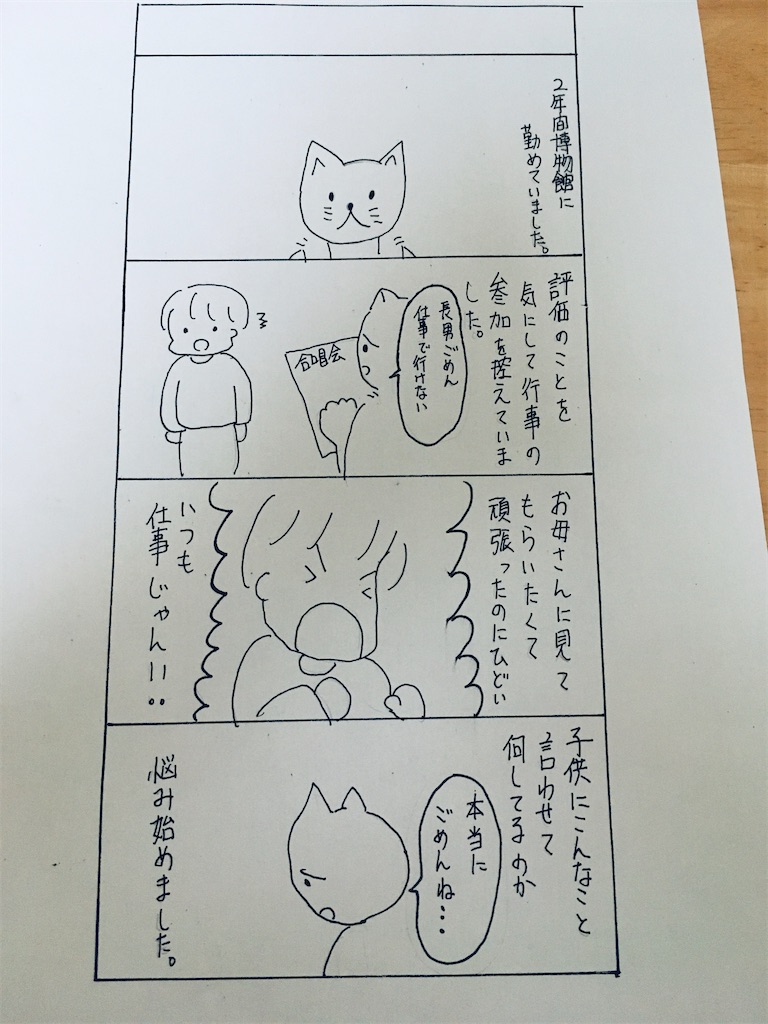 2年間博物館に
勤めていました。
評価のことを
気にして行事の
参加を控えていま
した。
長男ごめん
仕事で行けない
合唱会
お母さんに見て
もらいたくて
頑張ったのにひどい
いつも
仕事じゃん!!
子供にこんなこと
言わせて
何してるのか
本当に
ごめんね・・・
悩み始めました。